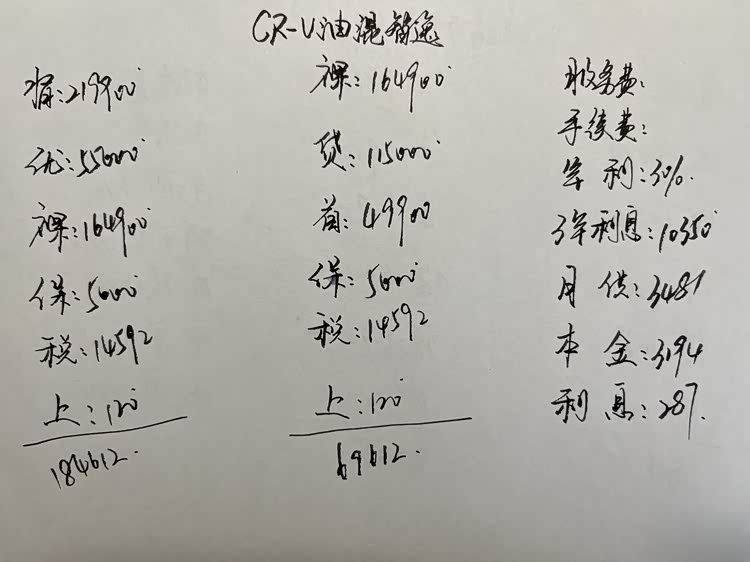 CR-V油混智逸
指:219900
优:55000
裸:164900
保:5000
税:14592
上:120
184612.
裸:164900
贷:115000
首:49900
保:5000
税:14592
上:120
69612.
服务费:
手续费:
年利:3%.
3年利息:10350
月供:3481
本金:3194
利息:287.